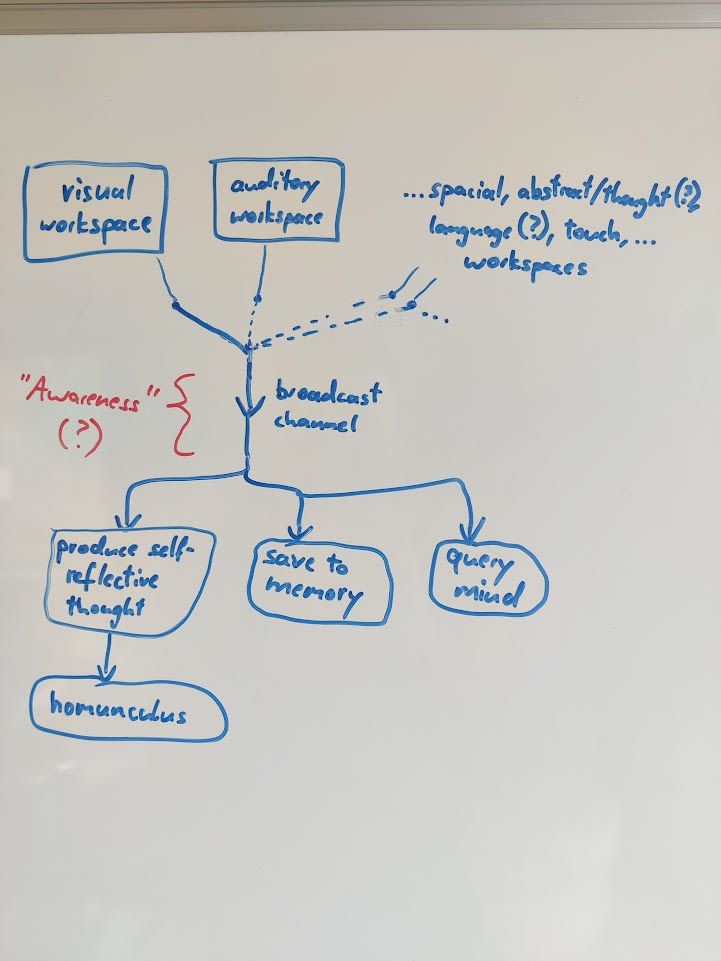 visual
workspace
auditory
workspace
...spacial, abstract/thought(?),
language(?), touch,...
workspaces
"Awareness"
(?)
broadcast
channel
produce self-
reflective
thought
save to
memory
query
mind
homunculus